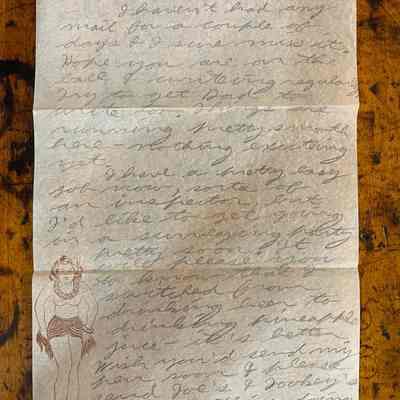 I haven't had any
mail for a couple of
days & I sure miss it.
Hope you are on the
ball & writing regularly
Try to get Dad to
write too. Things are
running pretty smooth
here – nothing exciting
yet.
I have a pretty easy
job now, sorta of
an inspector but
I'd like to get going
on a surveying party
pretty soon. It
will please you
to know that I
switched from
drinking beer to
drinking pineapple
juice – it's better
Wish you'd send my
pen soon & please
send Joe's &
doing